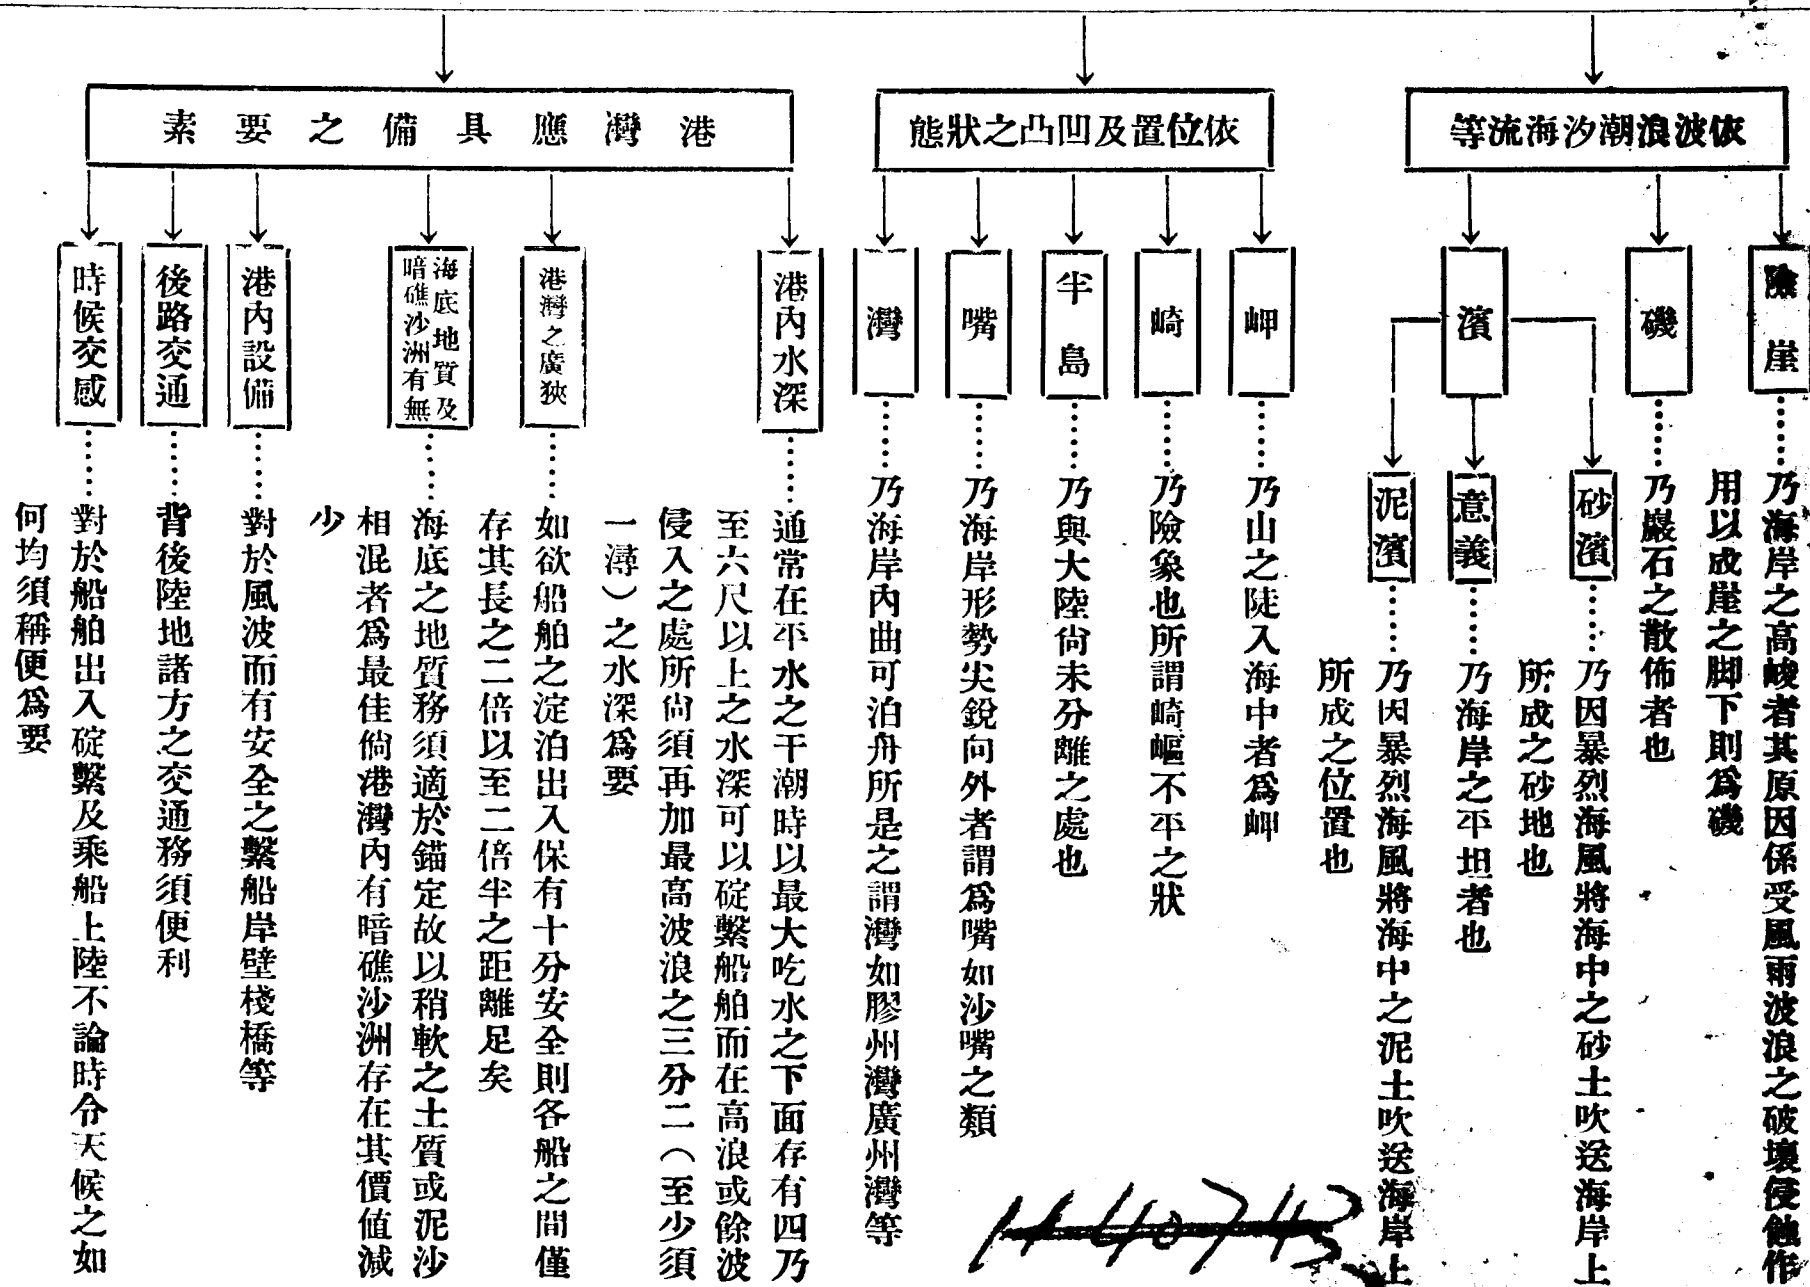 依波浪潮汐海流等
險崖
乃海岸之高峻者其原因係受風雨波浪之破壞侵蝕作
用以成崖之脚下則爲磯
磯
乃巖石之散佈者也
濱
砂濱
乃因暴烈海風將海中之砂土吹送海岸上
所成之砂地也
意義
乃海岸之平坦者也
泥濱
乃因暴烈海風將海中之泥土吹送海岸上
所成之位置也
依位置及凹凸之狀態
岬
乃山之陡入海中者爲岬
崎
乃險象也所謂崎嶇不平之狀
半島
乃與大陸尙未分離之處也
嘴
乃海岸形勢尖銳向外者謂爲嘴如沙嘴之類
灣
乃海岸內曲可泊舟所是之謂灣如膠州灣廣州灣等
港灣應具備之要素
港內水深
通常在平水之干潮時以最大吃水之下面存有四乃
至六尺以上之水深可以碇繫船舶而在高浪或餘波
侵入之處所尙須再加最高波浪之三分二（至少須
一潯）之水深爲要
港灣之廣狹
如欲船舶之淀泊出入保有十分安全則各船之間僅
存其長之二倍以至二倍半之距離足矣
海底地質及
暗礁沙洲有無
海底之地質務須適於錨定故以稍軟之土質或泥沙
相混者爲最佳倘港灣內有暗礁沙洲存在其價值減
少
港內設備
對於風波而有安全之繫船岸壁棧橋等
後路交通
背後陸地諸方之交通務須便利
時候交感
對於船舶出入碇繫及乘船上陸不論時令天候之如
何均須稱便爲要
1140743